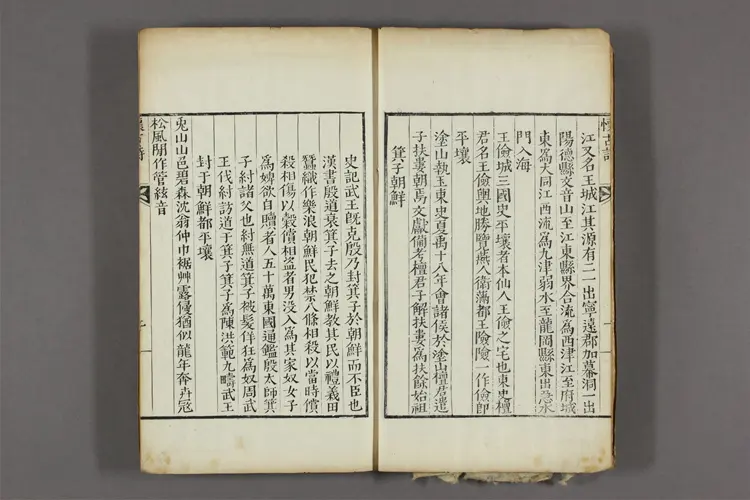 江又名王城江其源有二一出寧遠郡加幕洞一出
陽德縣文音山至江東縣界合流爲西津江至府城
東爲大同江西流爲九津弱水至龍岡縣東出急水
門入海
王儉城三國史平壤者本仙人王儉之宅也東史檀
君名王儉輿地勝覽燕人衛滿都王險險一作儉卽
平壤
塗山執玉東史夏禹十八年會諸侯於塗山檀君遣
子扶婁朝焉文獻備考檀君子解扶婁爲扶餘始祖
箕子朝鮮
史記武王旣克殷乃封箕子於朝鮮而不臣也
漢書殷道衰箕子去之朝鮮敎其民以禮義田
蠶織作樂浪朝鮮民犯禁八條相殺以當時償
殺相傷以穀償相盜者男没入爲其家奴女子
爲婢欲自贖者人五十萬東國通鑑殷太師箕
子紂諸父也紂無道箕子被髮佯狂爲奴周武
王伐紂訪道于箕子箕子爲陳洪範九疇武王
封于朝鮮都平壤
兎山山邑碧森沈翁仲巾裾艸露侵猶似龍年奔卉冦
松風閒作管絃音